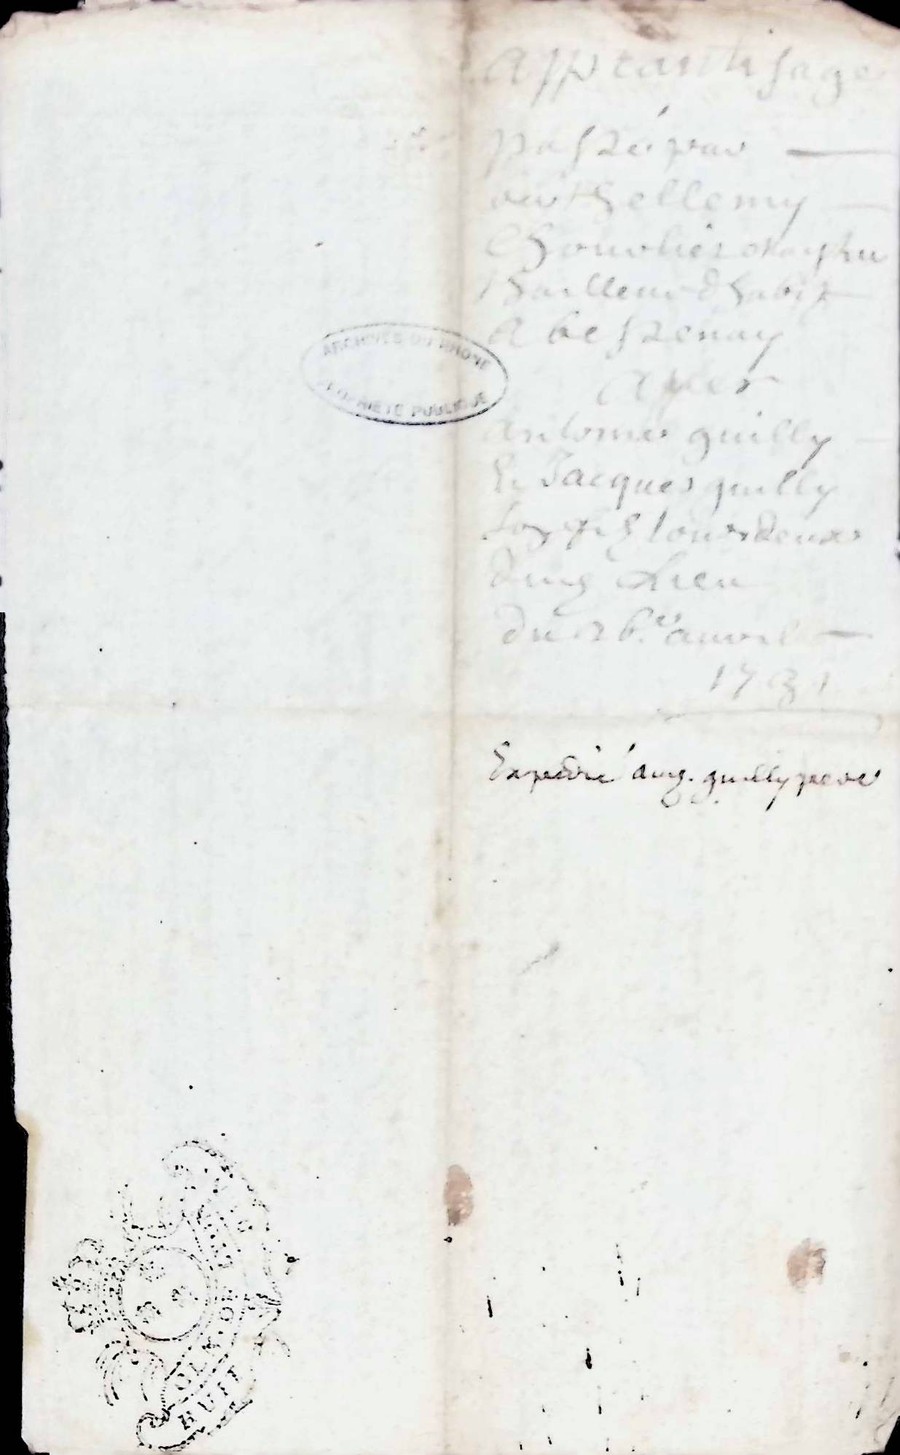 Apprantisage
passé par
barthellemy
Chavolier maistre
thailleur dhabit
a bessenay
Avec
Antoine guilly
& Jacques guilly
son fils tous deux
dud Lieu
du 26.e avril
1731
Expedié aud. guilly pere
ARCHIVES DU RHONE
PROPRIÉTÉ PUBLIQUE
HUIT